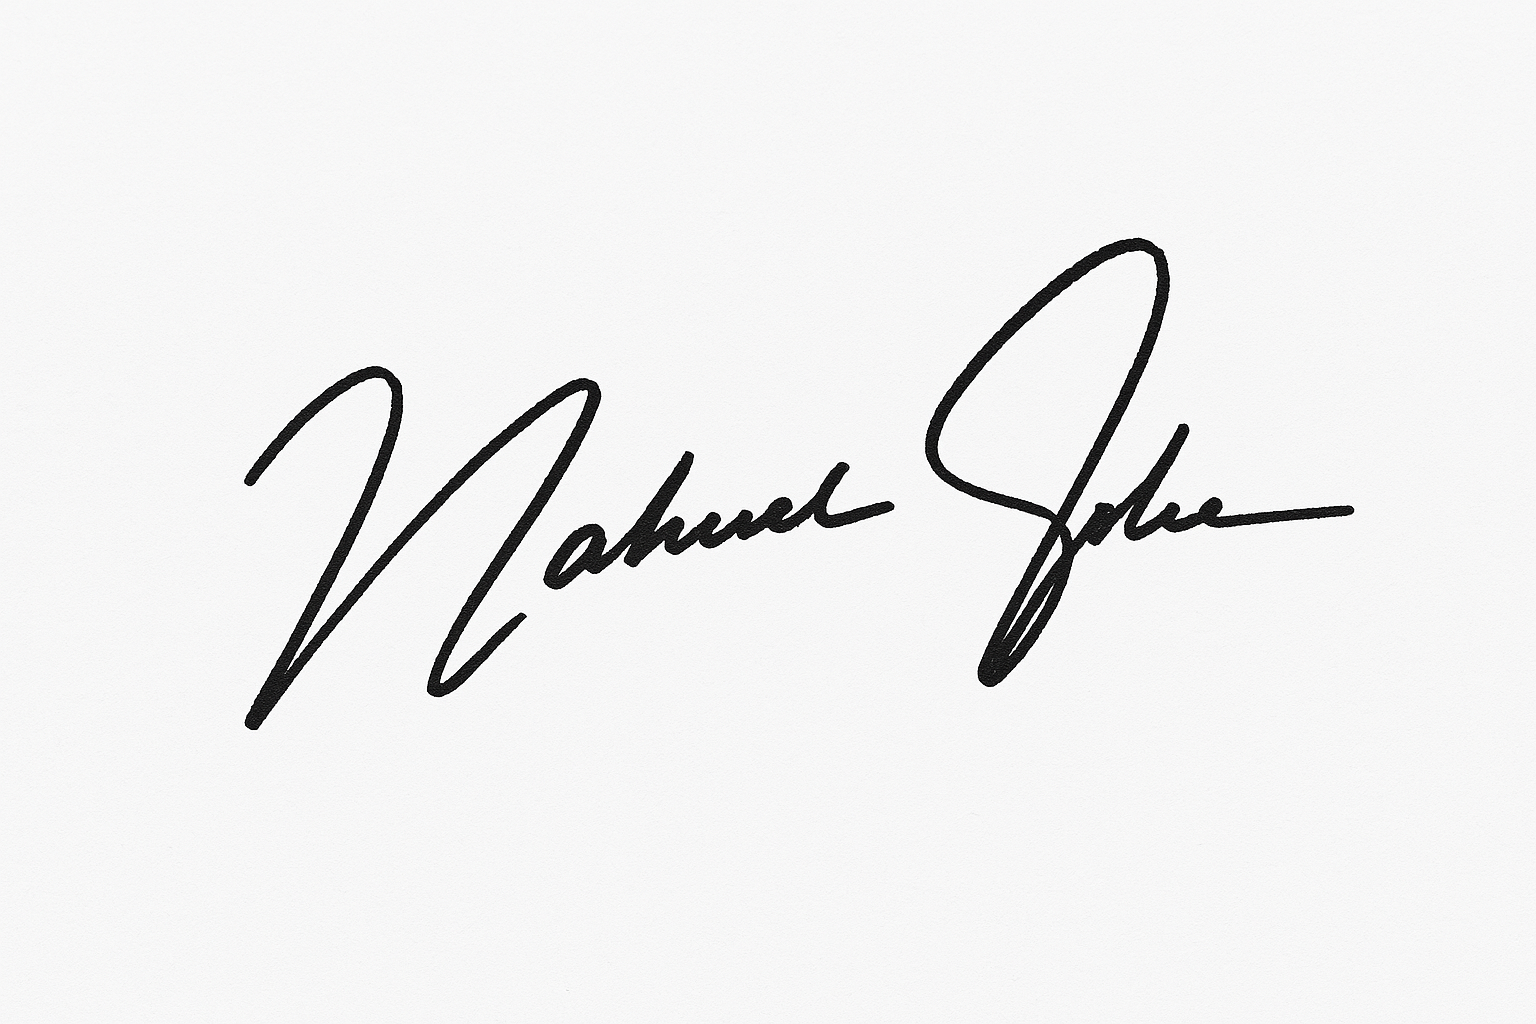 Nahuel John